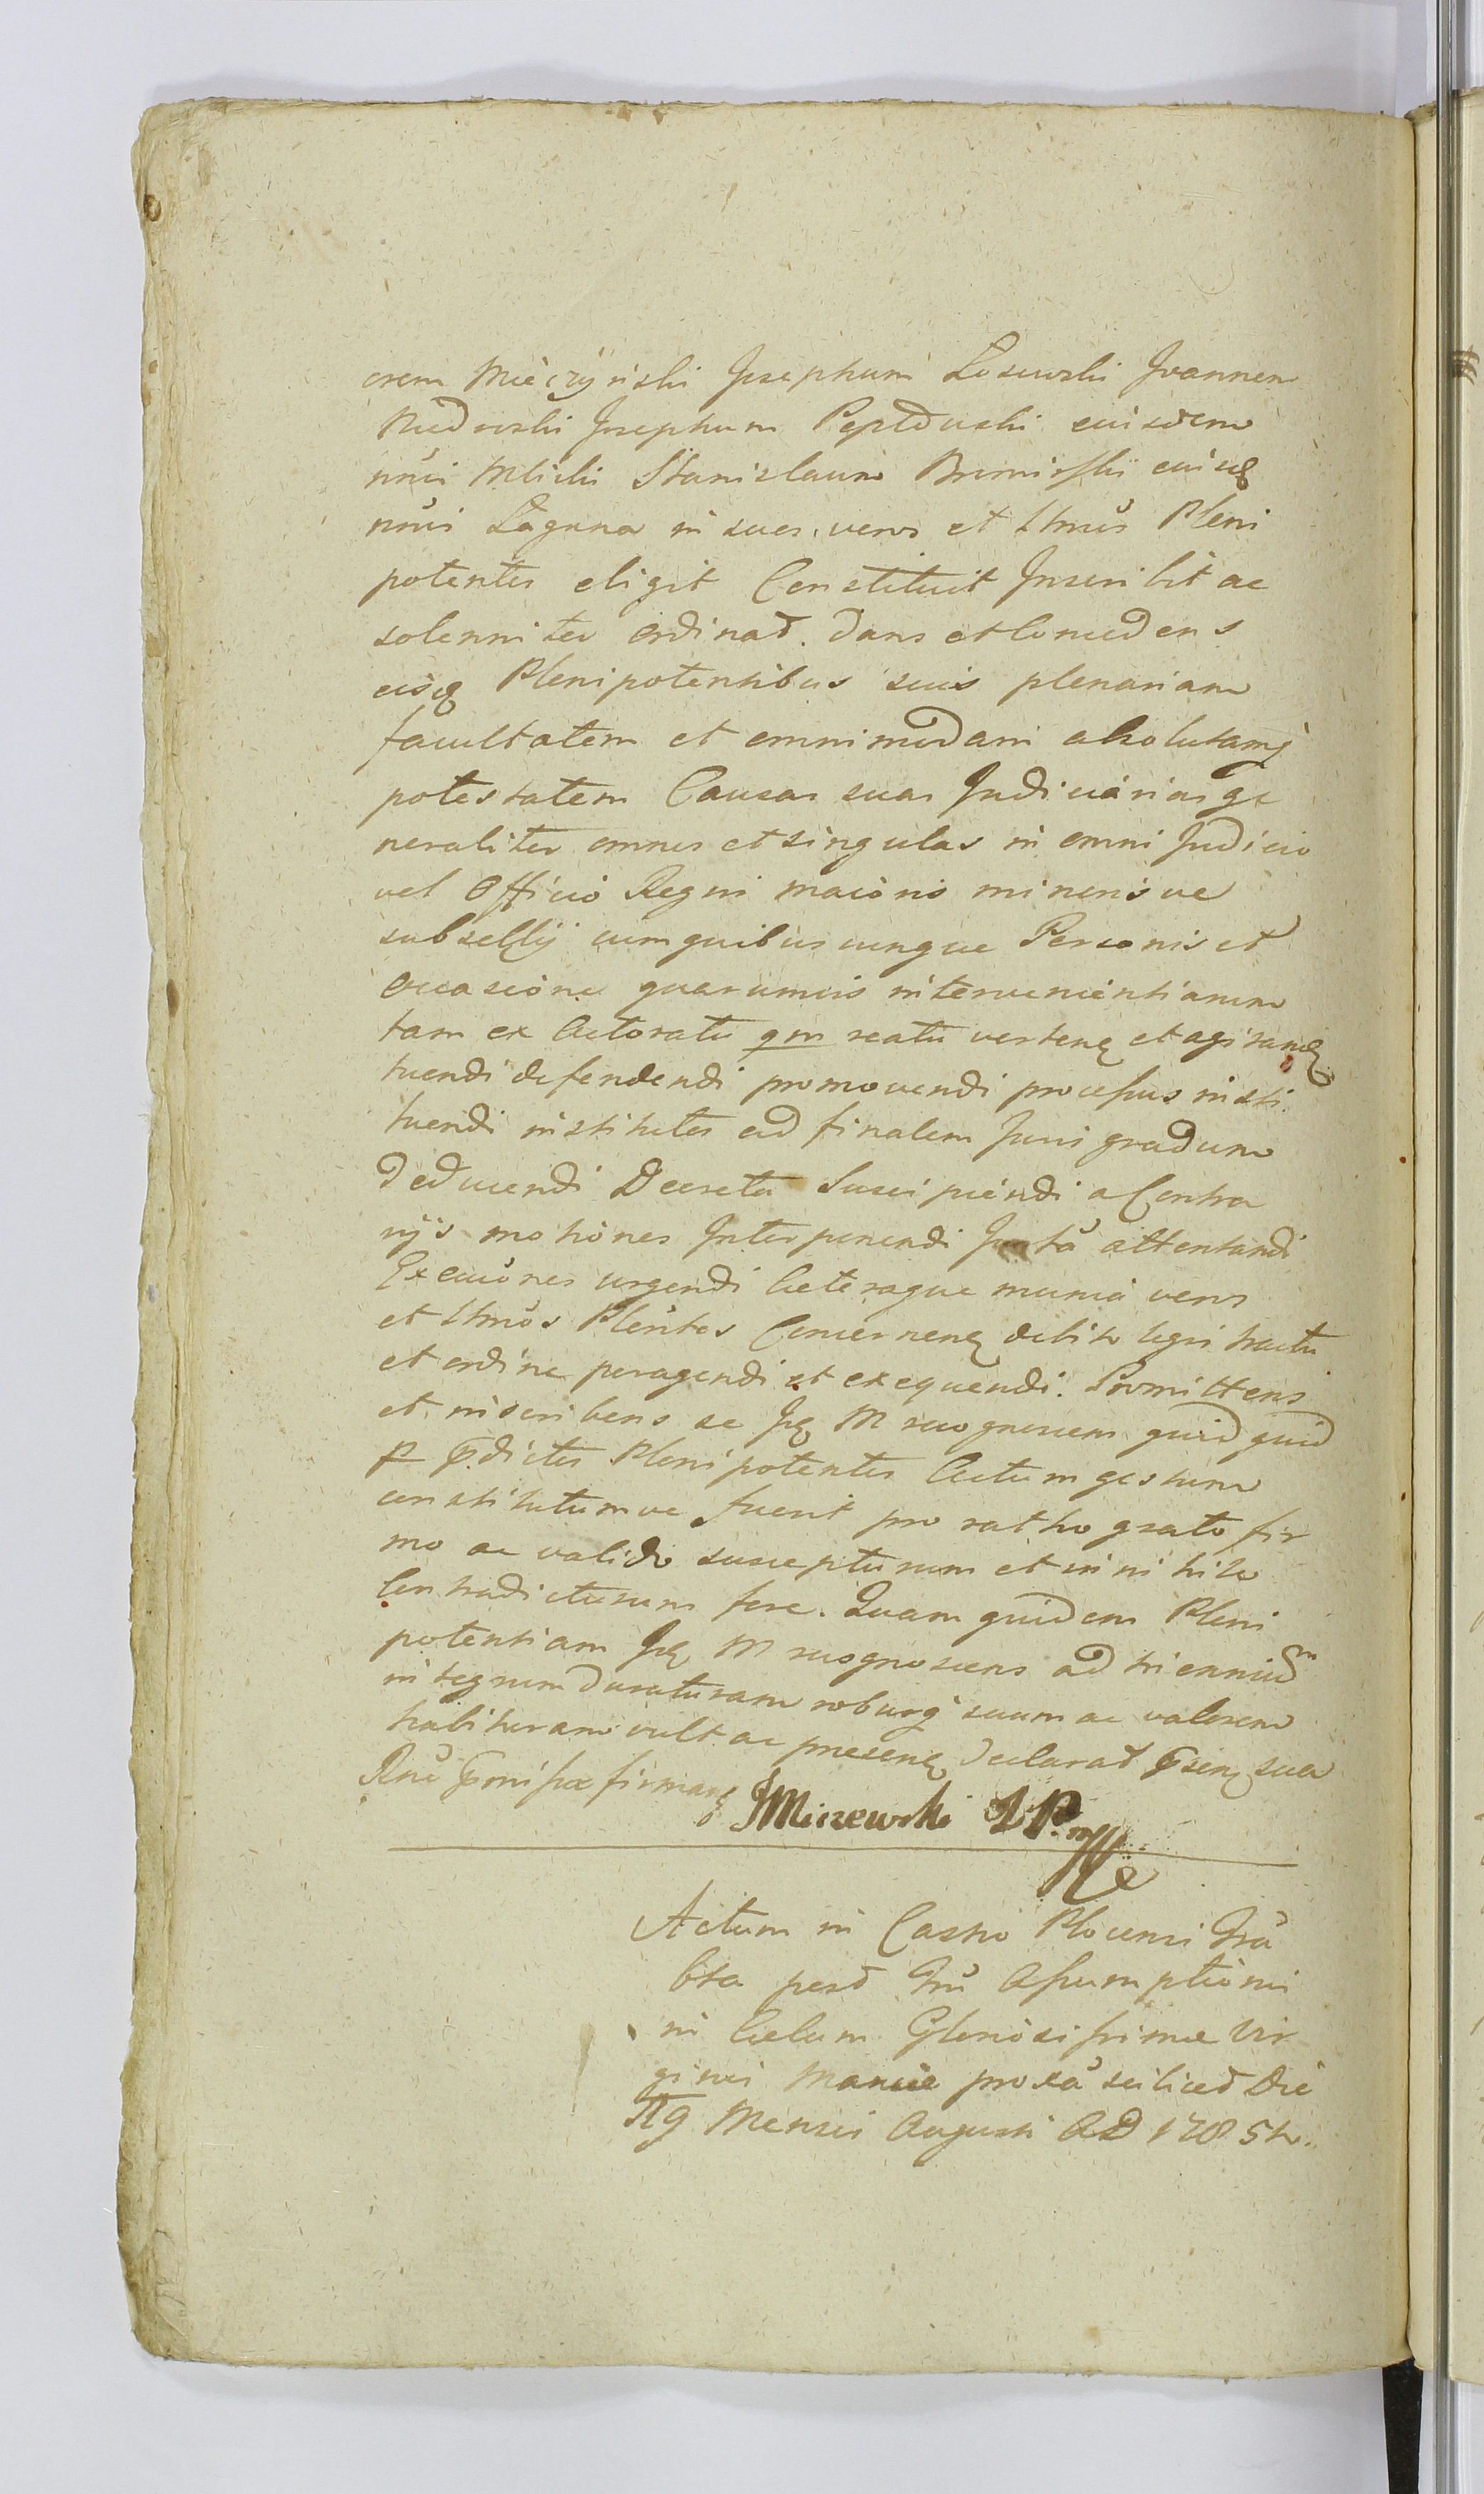 orem Mieczyński Josephum Łosiewski Joannem
Niedroski Josephum eiusdem
nnūi Mlicki Stanislaum eiusdꝫ
nnūi Laguna in suos veros et Lttmūs Pleni
potentes eligit Constituit Inscribit ac
solenniter ordinat. Dans et Concedens
eisdꝫ Plenipotentibus suis plenariam
facultatem et omnimodam absolutamq̃
potestatem Causas suas Judiciarias ge
neraliter omnes et singulas in omni Judicio
vel Officio Regni maioris minorisve
subsellij cum quibuscunque Personis et
occasione quarumvis intervenientiarum
tam ex Actoratu qm reatu vertenꝫ et agitandꝫ
tuendi defendendi promovendi processus insti
tuendi institutos ad finalem Juris gradum
Deducendi Decreta Suscipiendi a Contra
rijs motiones Interponendi attentandi
Execuõnes urgendi Ceteraque munia veros
et Lttmõs Plentes Concernenꝫ debito legis tractu
et ordine peragendi et exequendi. Promittens
et inscribens se Jdꝫ M recognoscens quid quid
p pdictos Plenipotentes Actum gestum
constitutumve fuerit pro ratho grato fir
mo ac valido suscepturum et in nihilo
Contradicturum fore. Quam quidem Pleni
potentiam Jdꝫ M recognoscens ad trienniū
integrum duraturam roburq̃ suum ac valorem
habituram vult ac presenꝫ declarat psenꝫ sua
Rne firmanꝫ JMiszewski
Actum in Castro Plocensi
bto post Assumptionis
in Caelum Gloriosissimae Vir
ginis Mariae proxā scilicet Die
19 Mensis Augusti AD 1785to.